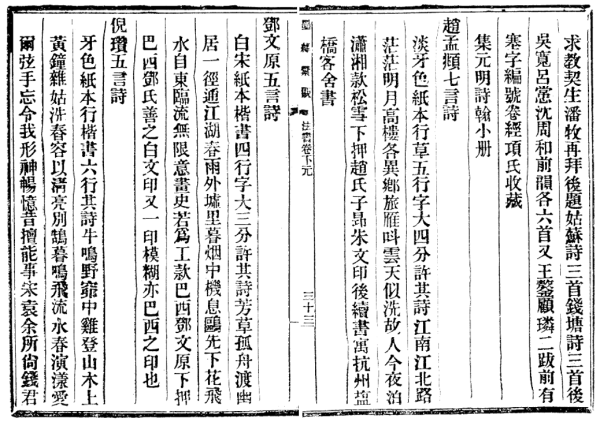 求教契生潘牧再拜後題姑蘇詩三首錢塘詩三首後
吳寬呂㦂沈周和前韻各六首又王鏊顧璘二跋前有
寒字編號卷經項氏收藏
集元明詩翰小册
趙孟頫七言詩
淡牙色紙本行草五行字大四分許其詩江南江北路
茫茫明月高樓各異鄉旅雁呌雲天似洗故人今夜泊
瀟湘款松雪下押趙氏子昻朱文印後續書寓杭州鹽
橋客舍書
墨緣彙觀 法書卷下元 三十三
鄧文原五言詩
白宋紙本楷書四行字大三分許其詩芳草孤舟渡幽
居一徑通江湖春雨外墟里暮烟中機息鷗先下花飛
水自東臨流無限意畫史若爲工款巴西鄧文原下押
巴西鄧氏善之白文印又一印模糊亦巴西之印也
倪瓚五言詩
牙色紙本行楷書六行其詩牛鳴野窌中雞登山木上
黃鐘雜姑洗春容以淸亮別鵠暮鳴飛流水春演漾愛
爾弦手忘令我形神暢憶昔擅能事宋袁余所尙錢君